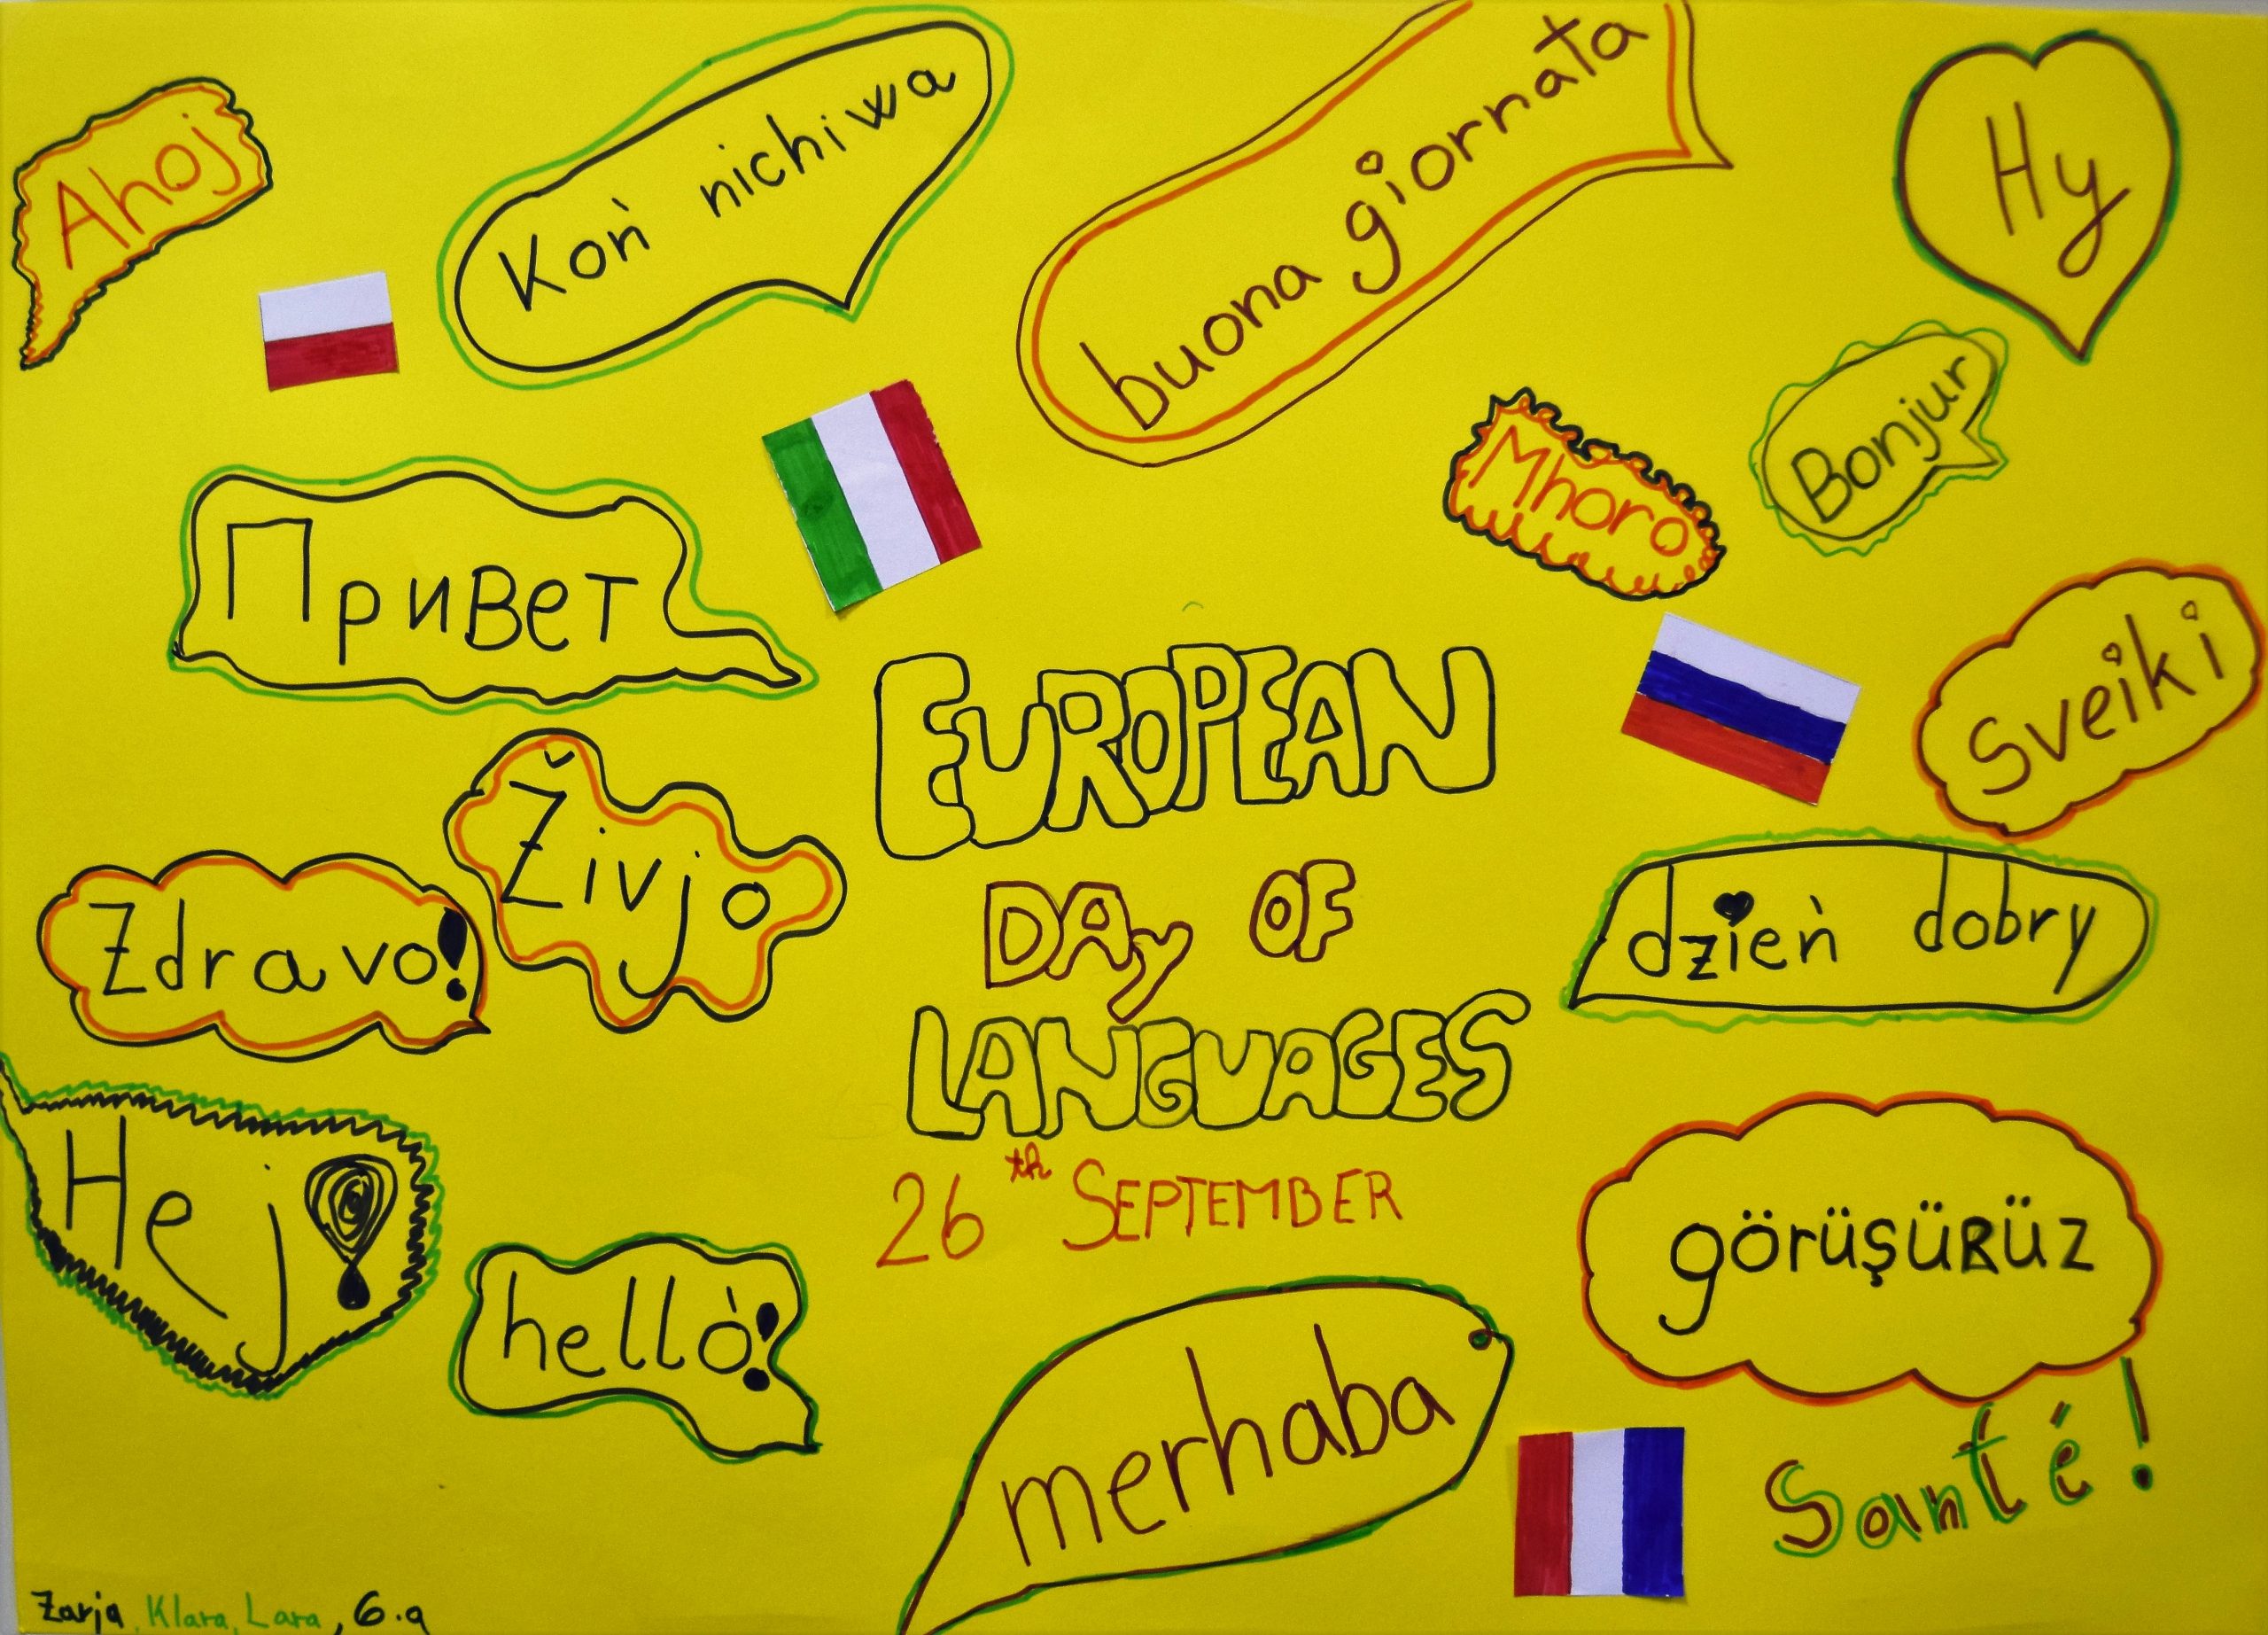 Ahoj
Koń nichiwa
buona giornata
Hy
Bonjur
Mhoro
Привет
Sveiki
EUROPEAN
DAy OF
LANGUAGES
26th SEPTEMBER
Živjo
Zdravo!
dzień dobry
Hej!
helló!
görüşürüz
merhaba
Santé!
Zarja, Klara, Lara, 6.a